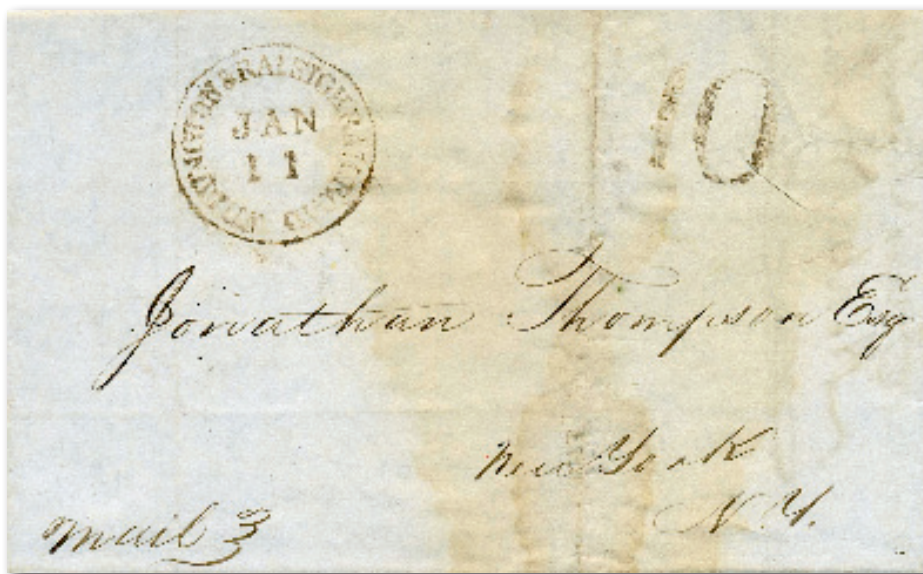 WILMINGTON & RALEIGH RAILROAD
JAN
11
10
Jonathan Thompson Esq
New York
N.Y.
Mail